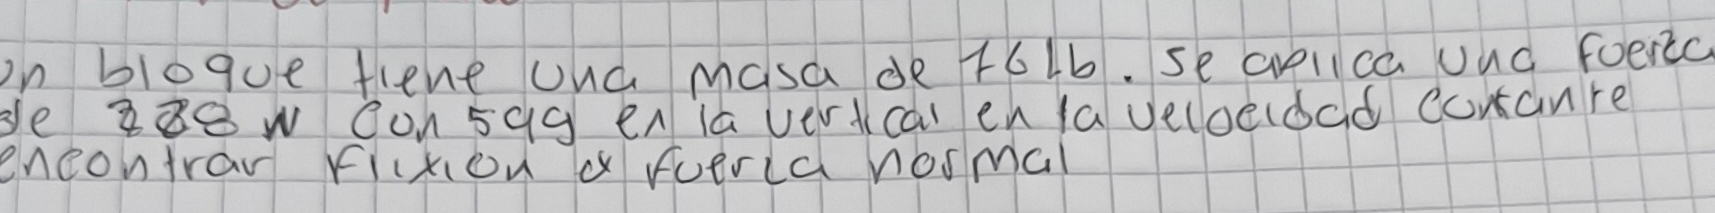 un bloque tiene una masa de 76 lb. se aplica una fuerza
de 288 N con 59g en la vertical en la velocidad contante
encontrar fixion y fuerza normal